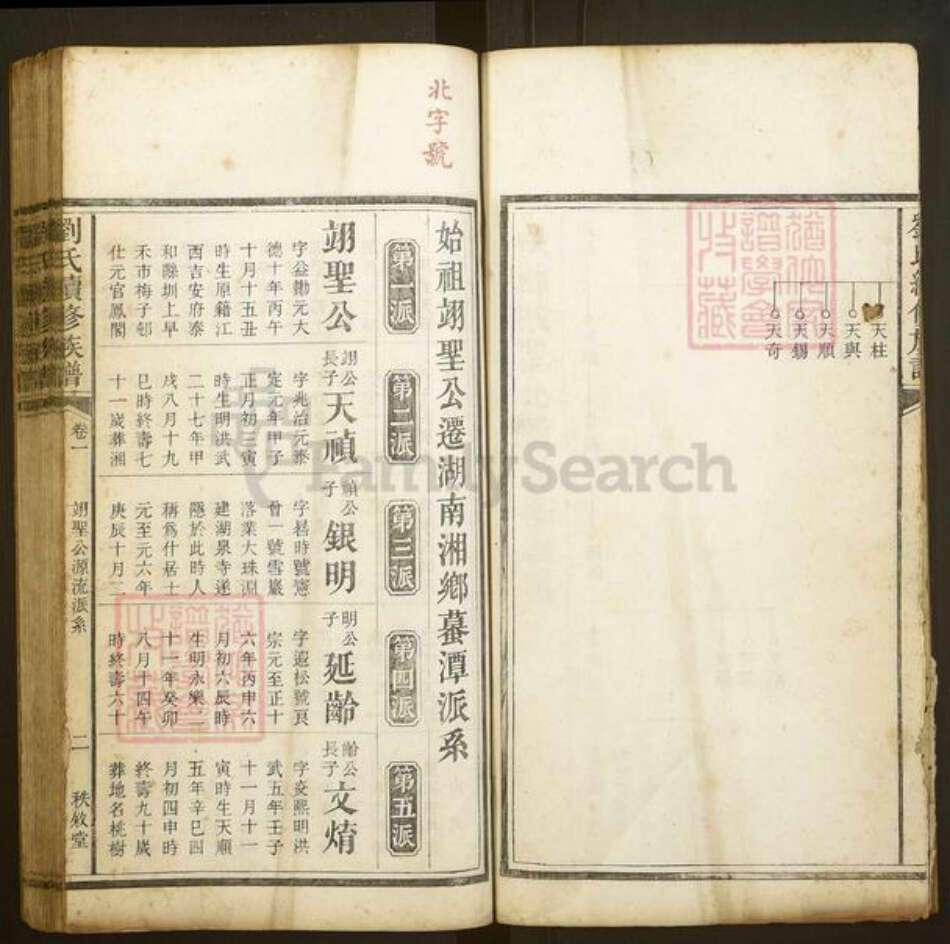 天柱
天與
天順
天錫
天奇
北字號
始祖翊聖公遷湖南湘鄉蕃潭派系
第一派
第二派
第三派
第四派
第五派
翊聖公
字益勛元大
德十年丙午
十月十五丑
時生原籍江
西吉安府泰
和縣圳上早
禾市梅子邨
仕元官鳳閣
翊公
長子
天禎
字兆治元泰
定元年甲子
正月初三寅
時生明洪武
二十七年甲
戌八月十九
巳時終壽七
十一歲葬湘
禎公
子
銀明
字易時號憲
會一號雪巖
落業大珠淵
建湖泉寺遂
隱於此時人
稱爲什居士
元至元六年
庚辰十月二
明公
子
延齡
字遐松號頁
宗元至正十
六年丙申六
月初六辰時
生明永樂二
十一年癸卯
八月十四午
時終壽六十
齡公
長子
文焴
字炎熙明洪
武五年壬子
十一月十一
寅時生天順
五年辛巳四
月初四申時
終壽九十歲
葬地名桃樹
劉氏續修族譜
卷一
翊聖公源流派系
二
秩敘堂
FamilySearch